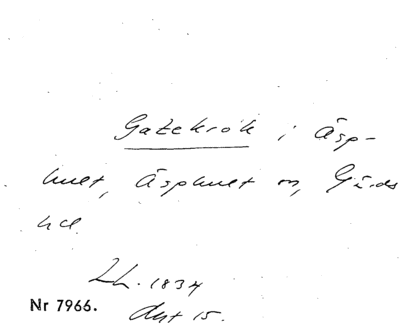 Gatekrok i Äsp-
huet, Äsphuet sn, Gärds
hd
Lh. 1834
Akt 15.
Nr 7966.